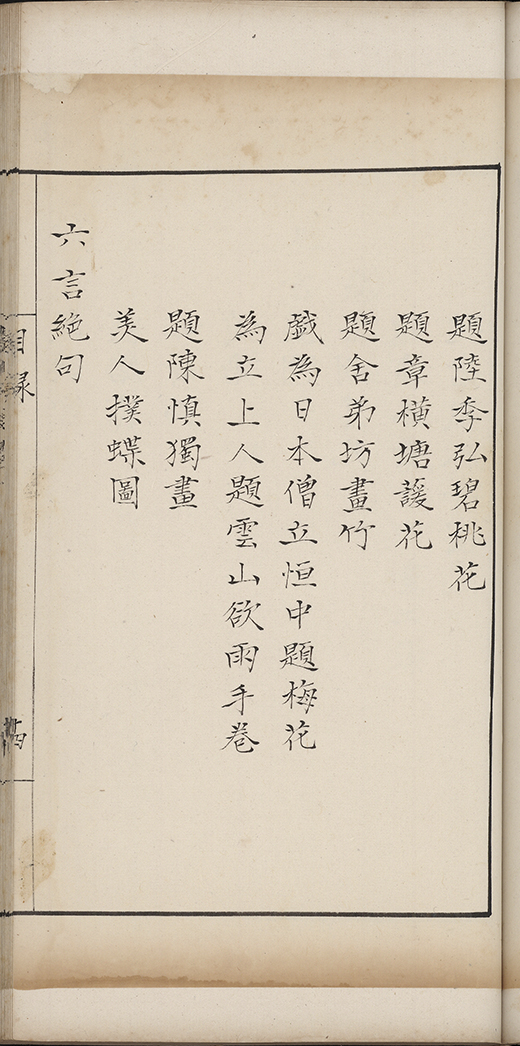 題陸季弘碧桃花
題章橫塘諼花
題舍弟坊畫竹
戯為日本僧立恒中題梅花
為立上人題雲山欲雨手卷
題陳慎獨畫
美人撲蝶圖
六言絕句
目录